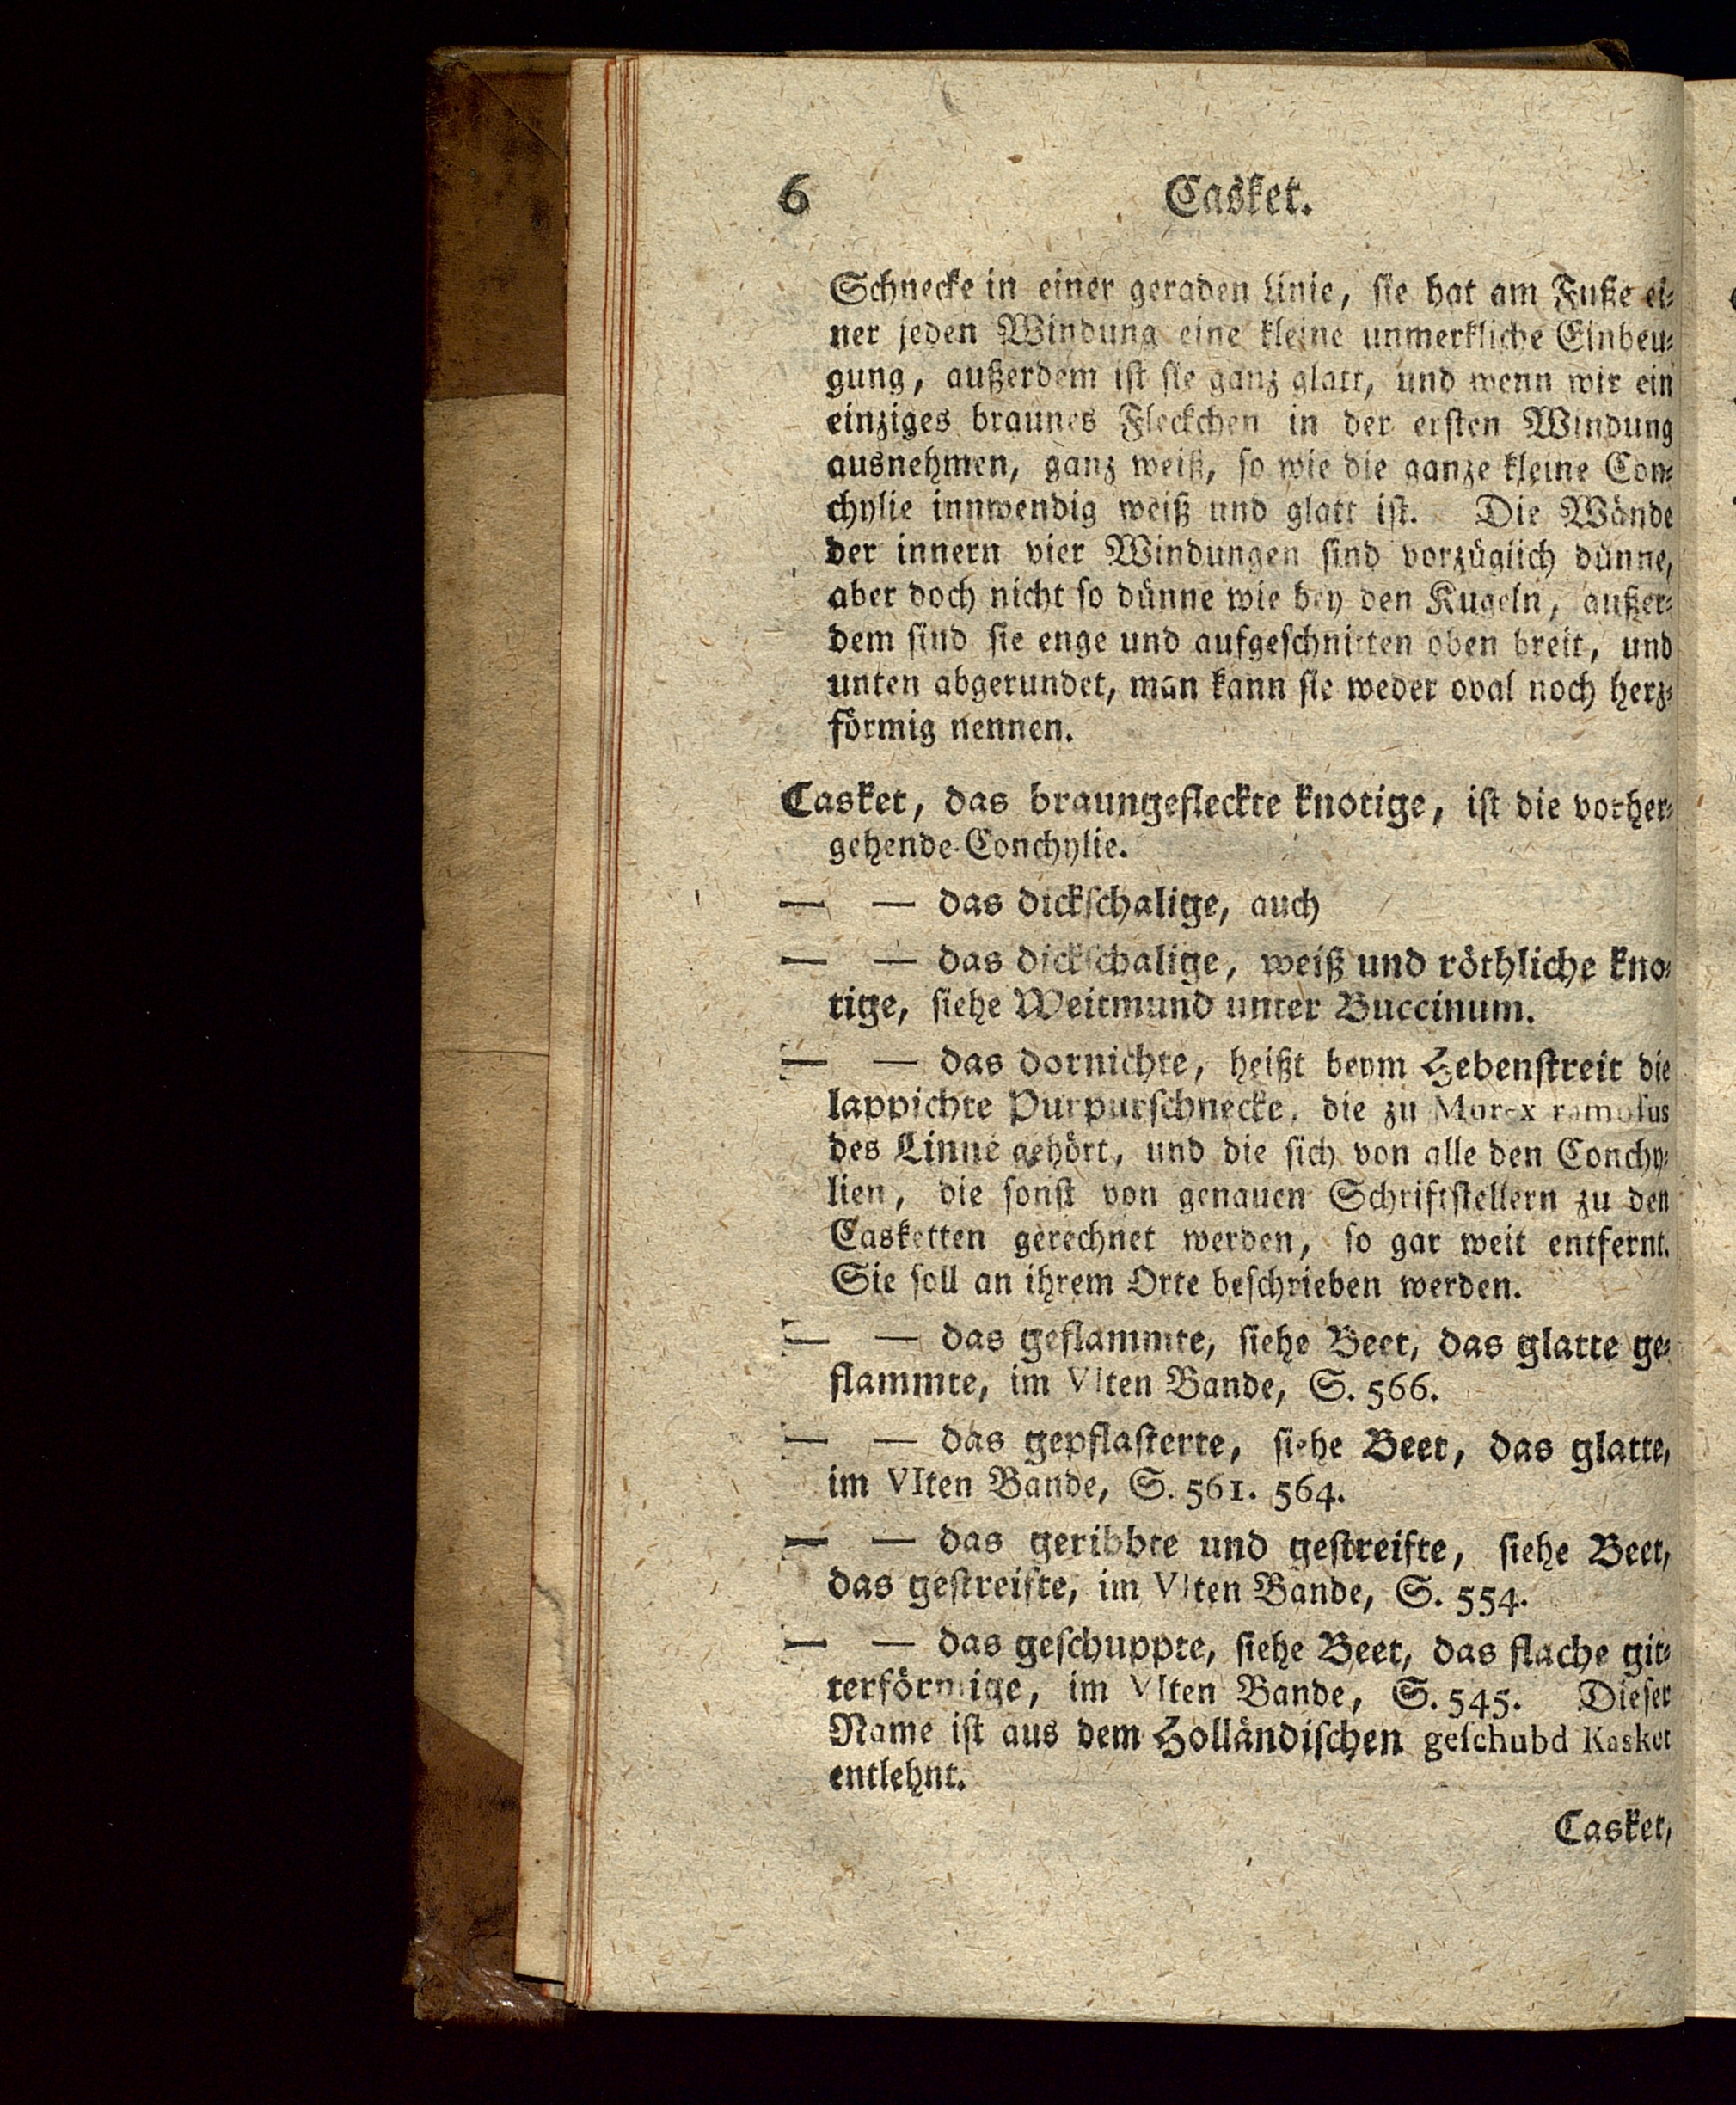 6 Casket.
Schnecke in einer geraden Linie, sie hat am Fuße ei⸗
ner jeden Windung eine kleine unmerkliche Einbeu⸗
gung, außerdem ist sie ganz glatt, und wenn wir ein
einziges braunes Fleckchen in der ersten Windung
ausnehmen, ganz weiß, so wie die ganze kleine Con⸗
chylie innwendig weiß und glatt ist. Die Wände
der innern vier Windungen sind vorzüglich dünne,
aber doch nicht so dünne wie bey den Kugeln, außer⸗
dem sind sie enge und aufgeschnitten oben breit, und
unten abgerundet, man kann sie weder oval noch herz⸗
förmig nennen.
Casket, das braungefleckte knotige, ist die vorher⸗
gehende Conchylie.
— — das dickschalige, auch
— — das dickschalige, weiß und röthliche kno⸗
tige, siehe Weitmund unter Buccinum.
— — das dornichte, heißt beym Hebenstreit die
lappichte Purpurschnecke, die zu Murex ramosus
des Linne gehört, und die sich von alle den Conchy⸗
lien, die sonst von genauen Schriftstellern zu den
Casketten gerechnet werden, so gar weit entfernt.
Sie soll an ihrem Orte beschrieben werden.
— — das geflammte, siehe Beet, das glatte ge⸗
flammte, im VIten Bande, S. 566.
— — das gepflasterte, siehe Beet, das glatte,
im VIten Bande, S. 561. 564.
— — das geribbte und gestreifte, siehe Beet,
das gestreifte, im VIten Bande, S. 554.
— — das geschuppte, siehe Beet, das flache git⸗
terförmige, im VIten Bande, S. 545. Dieser
Name ist aus dem Holländischen geschubd Kasket
entlehnt.
Casket,